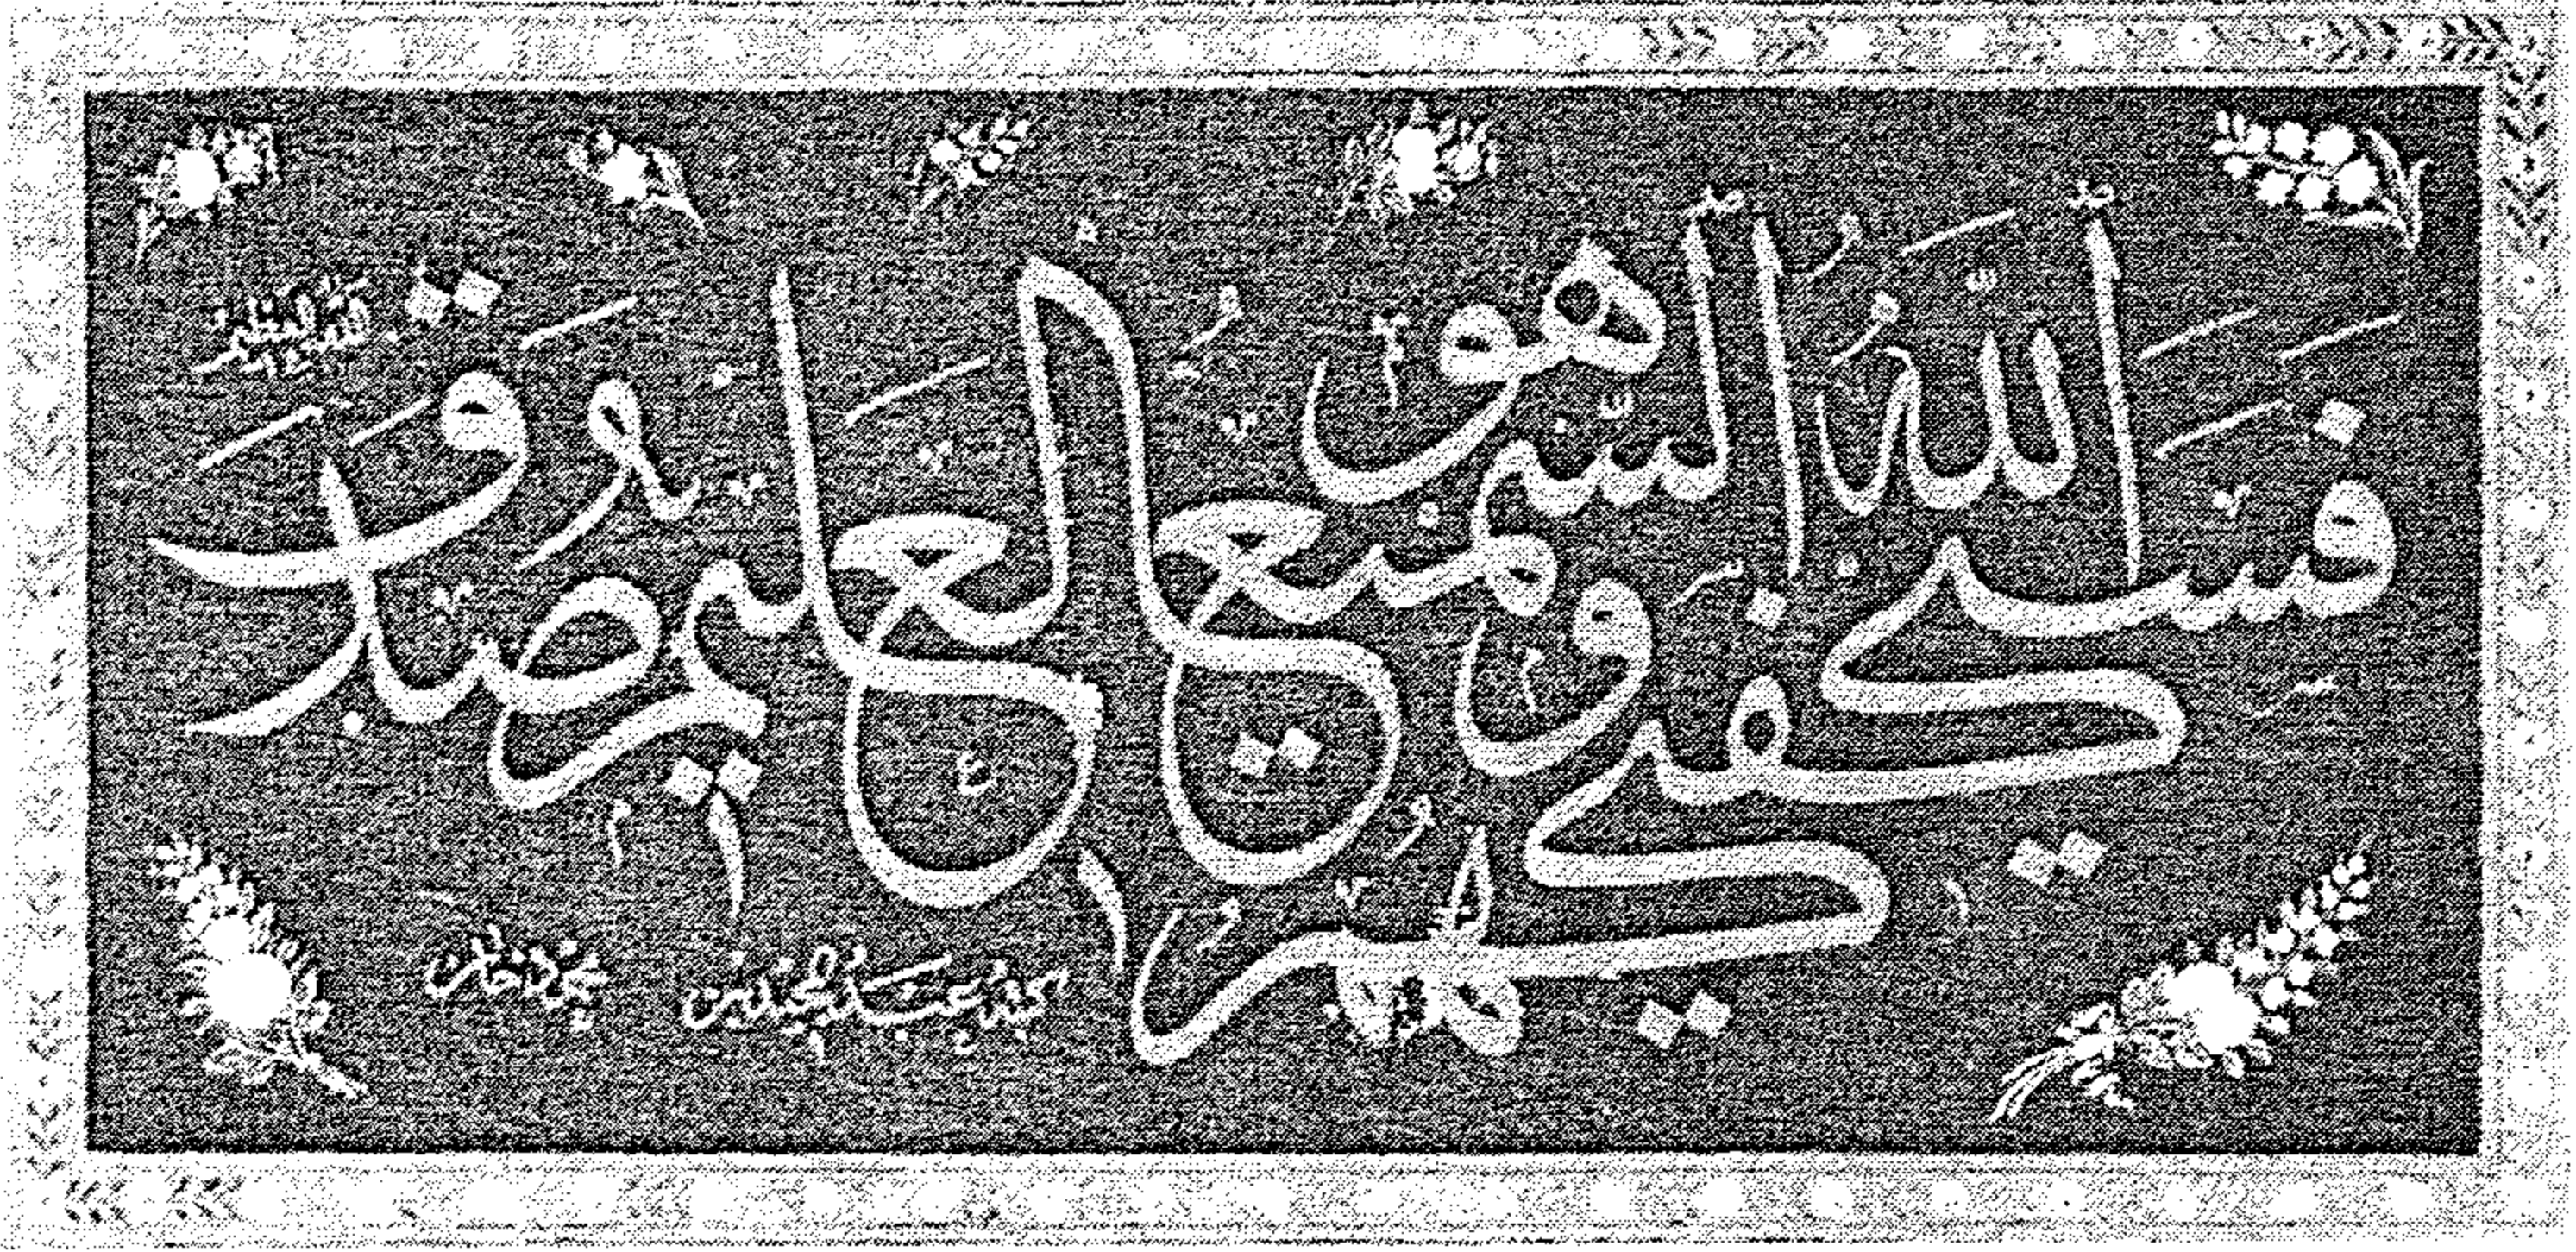 فسيكفيكهم الله وهو السميع العليم صدق
كتبه عبد المجيد بن محمود خان